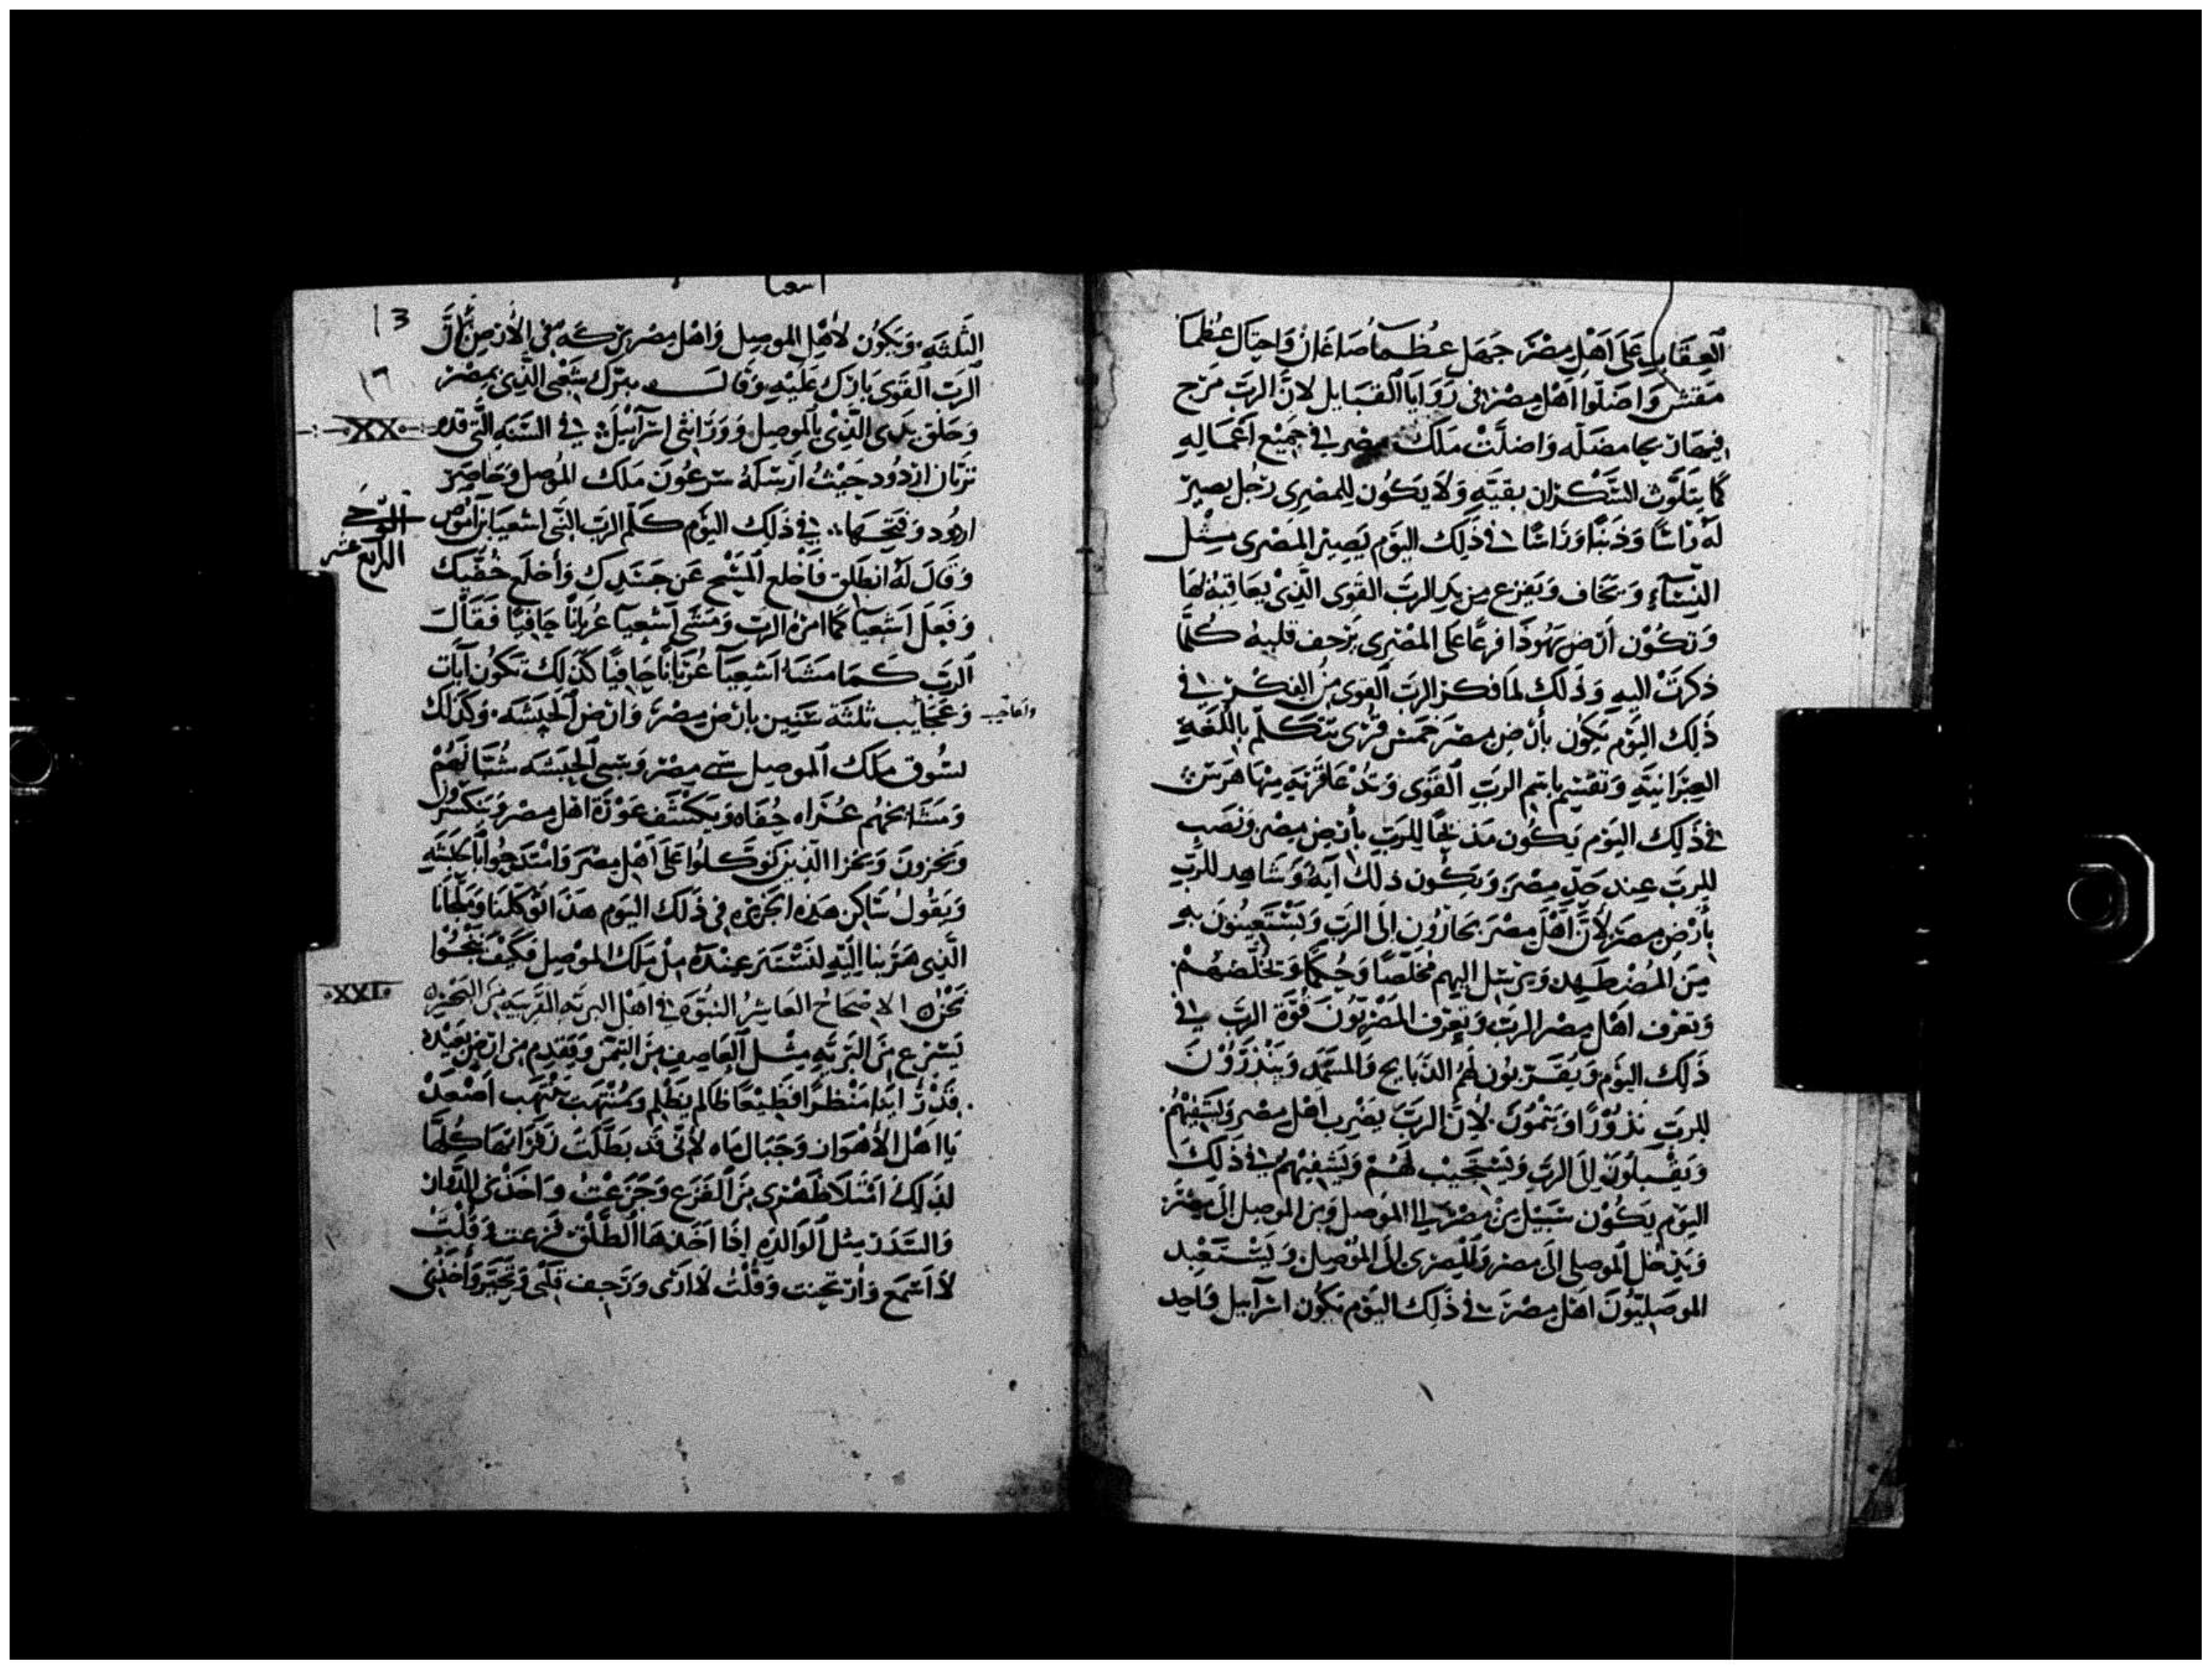 العقاب على اهل مصر جهل عظما صاغان واحتال عظما
مفنس واضلوا اهل مصر في زوايا القبايل لان الرب مزج
فيها مضله واضلت ملك مصر في جميع اعماله
كما يتلوث السكران بقيّه ولا يكون للمصري رجل يصير
له راسًا وذنبًا وراسًا في ذلك اليوم يصير المصري مثل
النسآء ويخاف ويفزع من يد الرب القوى الذي يعاقبه لها
وتكون ارض يهوذا فزعًا على المصري يزحف قلبه كلما
ذكرت اليه وذلك لما فكر الرب القوى من الفكر في
ذلك اليوم يكون بأرض مصر خمس قرى تتكلم باللغه
العبرانيه وتقسم باسم الرب القوى وتدعا قريه منها هرس
في ذلك اليوم يكون مذبحًا للرب بأرض مصر ونصب
للرب عند حد مصر ويكون ذلك آية وشاهد للرب
بأرض مصر لأن اهل مصر يجارون الى الرب ويستعينون به
من المضطهد ويرسل اليهم مخلصًا وحكمًا ويخلصهم
وتعرف اهل مصر الرب وتعرف المصريون قوة الرب في
ذلك اليوم ويقربون لهم الذبايح والسمد وينذرون
للرب نذورًا ويتمون لان الرب يضرب اهل مصر ويشفيهم
ويقبلون الى الرب ويستجيب لهم ويشفيهم في ذلك
اليوم يكون سبيل من مصر الى الموصل ومن الموصل الى مصر
ويدخل الموصلى الى مصر والمصرى الى الموصل ويستعبد
الموصليون اهل مصر في ذلك اليوم يكون اسرآييل واحد
اشعيا
13
١٦
الثلثه ويكون لأهل الموصل واهل مصر بركه في الأرض لأن
الرب القوى بارك عليه وقال مبرك شعبى الذى بمصر
XX
وخلق يدى الذى بالموصل وورانثى اسرآييل في السنه التى قدم
تزتان ازدود حيث ارسله سرعون ملك الموصل وحاصر
اردود وفتحها في ذلك اليوم كلم الرب النبى اشعيا بن آموص
الرابع عشر
وقال له انطلق فاخلع المسح عن جسدك وأخلع خفيك
وفعل اشعيا كما امره الرب ومشى اشعيا عريانًا حافيًا فقال
الرب كما مشا اشعيا عريانًا حافيًا كذلك تكون آيات
واعاجيب
وعجايب ثلثة سنين بارض مصر وارض الحبشه وكذلك
يسوق ملك الموصل سبى مصر وسبى الحبشه شبانهم
ومشايخهم عراه حفاه ويكشف عورة اهل مصر وينكسرون
ويخزون ويخزا الذين توكلوا على اهل مصر واستدحوا بالحبشه
ويقول ساكن هذه الجزيره في ذلك اليوم هذا توكلنا وملجانا
الذى هربنا اليه لنستتر عنده من ملك الموصل فكيف ننجوا
XXI
نحن الاصحاح العاشر النبوه في اهل البريه القريبه من البحيره
يسرع من البريه مثل العاصف من التيمن ويقدم من ارض بعيده
قدر ابدا منظرًا فظيعًا ظالم يظلم ومنتهب ينتهب اصعدى
يا اهل الأهواز وجبال ماه لأنى قد بطلت زفراتها كلها
لذلك امتلا ظهرى من الفزع وجزعت واخذنى الدوار
والسدر مثل الوالده اذا اخذها الطلق فزعت وقلت
لا اسمع وارتجنت وقلت لا ارى ورجف قلبى وتحير وأخذنى